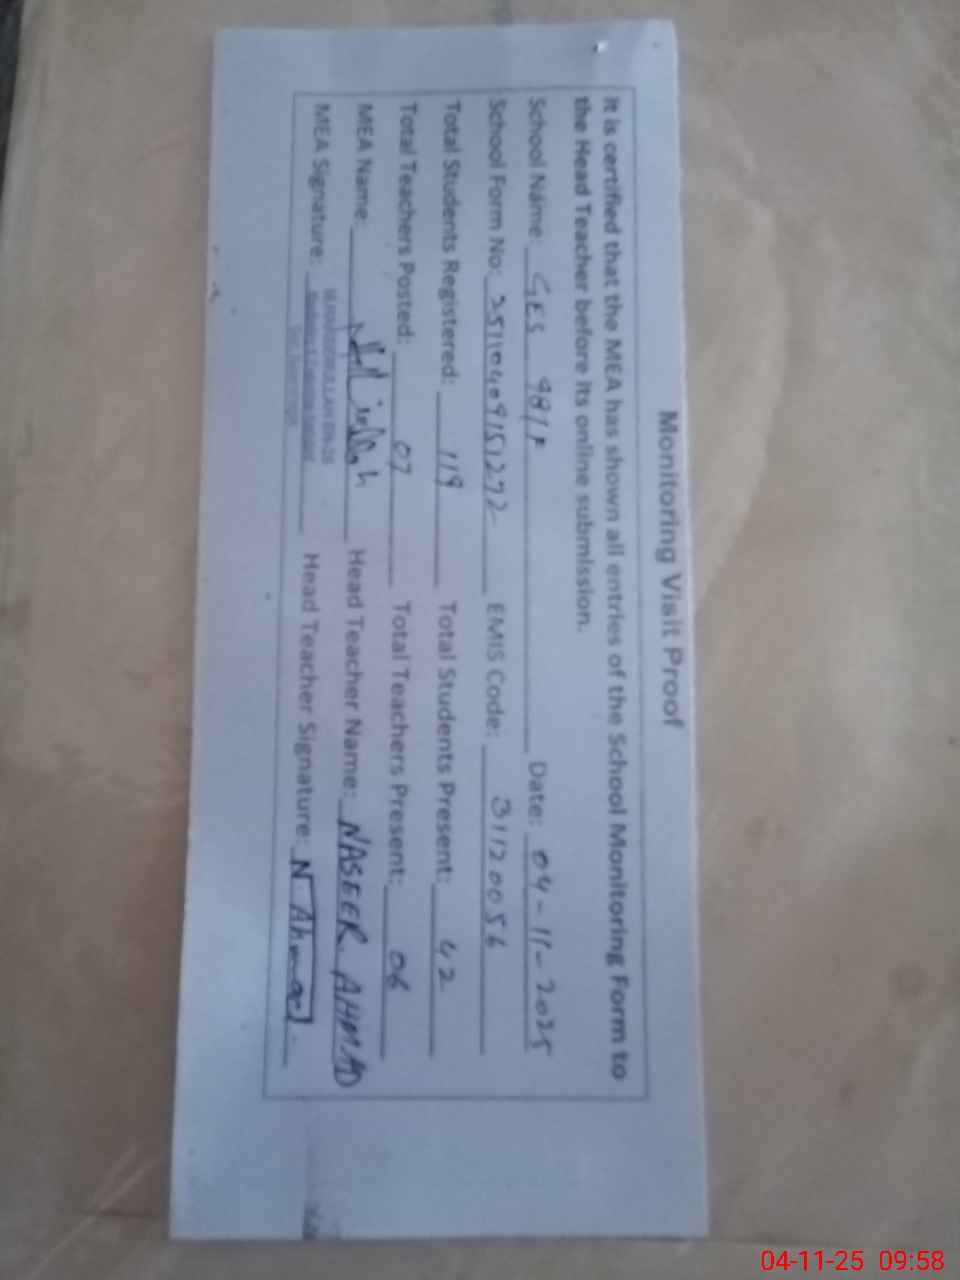 Monitoring Visit Proof
It is certified that the MEA has shown all entries of the School Monitoring Form to
the Head Teacher before its online submission.
School Name: GES 98/F Date: 04-11-2025
School Form No: 25110409151272 EMIS Code: 31120056
Total Students Registered: 119 Total Students Present: 42
Total Teachers Posted: 07 Total Teachers Present: 06
MEA Name: Head Teacher Name: NASEER AHMAD
MEA Signature: Head Teacher Signature: N Ahmad
04-11-25 09:58